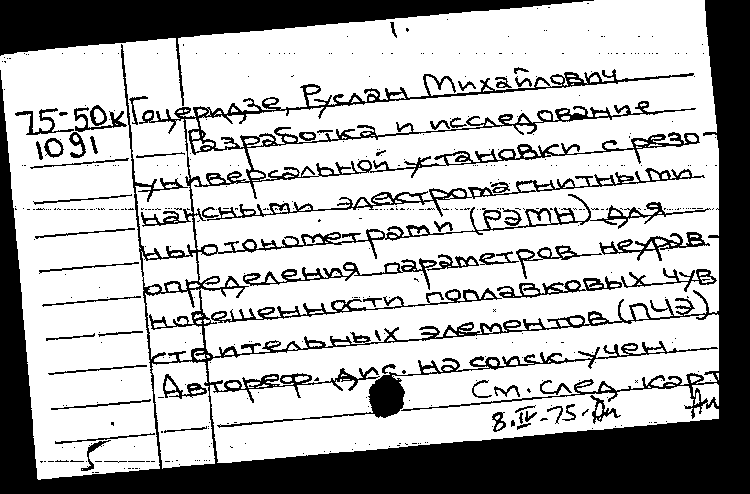 1.
75-50к Гоцеридзе, Руслан Михайлович
1091 Разработка и исследование
универсальной установки с резо-
нансными электромагнитными
ньютонометрами (РЭМН) для
определения параметров неурав-
новешенности поплавковых чув
ствительных элементов (ПЧЭ).
Автореф. дис. на соиск. учен.
См. след. карт
8.IV-75-
5